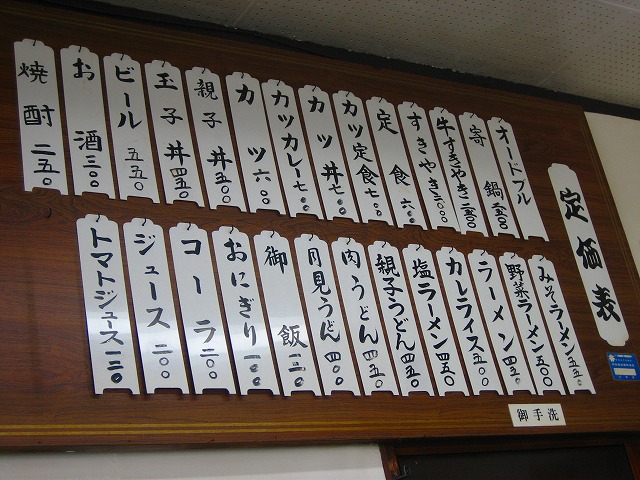 定価表
オードブル
寄鍋 二五〇〇
牛すきやき 二五〇〇
すきやき 二〇〇〇
定食 六〇〇
カツ定食 七〇〇
カツ丼 七〇〇
カツカレー 七〇〇
カツ 六〇〇
親子丼 五〇〇
玉子丼 四五〇
ビール 五五〇
お酒 三〇〇
焼酎 二五〇
みそラーメン 五五〇
野菜ラーメン 五〇〇
ラーメン 四五〇
カレライス 五〇〇
塩ラーメン 四五〇
親子うどん 四五〇
肉うどん 四五〇
月見うどん 四〇〇
御飯 一三〇
おにぎり 一〇〇
コーラ 二〇〇
ジュース 二〇〇
トマトジュース 一二〇
御手洗